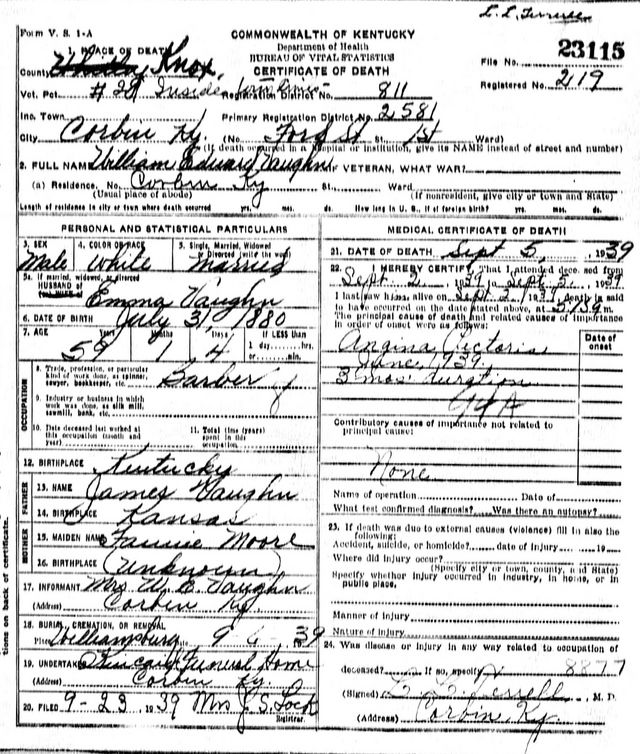 L. L. Terrell
Form V. S. 1-A
COMMONWEALTH OF KENTUCKY
Department of Health
BUREAU OF VITAL STATISTICS
CERTIFICATE OF DEATH
File No. 23115
Registered No. 219
1. PLACE OF DEATH
County Whitley Knox
Vot. Pct. #28 Inside Registration District No. 811
Inc. Town Primary Registration District No. 2581
City Corbin Ky. (No. Ford St. St. 1st Ward)
(If death occurred in a hospital or institution, give its NAME instead of street and number)
2. FULL NAME William Edward Vaughn IF VETERAN, WHAT WAR?
(a) Residence. No. Corbin Ky St. Ward
(Usual place of abode) (If nonresident, give city or town and State)
Length of residence in city or town where death occurred yrs. mos. ds. How long in U. S., if of foreign birth? yrs. mos. ds.
PERSONAL AND STATISTICAL PARTICULARS
3. SEX Male
4. COLOR OR RACE White
5. Single, Married, Widowed or Divorced (write the word) Married
5a. If married, widowed, or divorced
HUSBAND of
(or) WIFE of Emma Vaughn
6. DATE OF BIRTH July 31, 1880
7. AGE Years 59 Months 1 Days 4 If LESS than
1 day, hrs.
or min.
OCCUPATION
8. Trade, profession, or particular
kind of work done, as spinner,
sawyer, bookkeeper, etc. Barber
9. Industry or business in which
work was done, as silk mill,
sawmill, bank, etc.
10. Date deceased last worked at
this occupation (month and
year)
11. Total time (years)
spent in this
occupation
12. BIRTHPLACE Kentucky
FATHER
13. NAME James Vaughn
14. BIRTHPLACE Kansas
MOTHER
15. MAIDEN NAME Fannie Moore
16. BIRTHPLACE (Unknown)
17. INFORMANT Mrs W. E. Vaughn
(Address) Corbin Ky
18. BURIAL, CREMATION, OR REMOVAL
Place Williamsburg Date 9-6-, 39
19. UNDERTAKER Kincaid Funeral Home
Corbin Ky.
20. FILED 9-23, 1939 Mrs J. S. Lock
Registrar.
MEDICAL CERTIFICATE OF DEATH
21. DATE OF DEATH Sept 5, 1939
22. I HEREBY CERTIFY, That I attended deceased from
Sept. 2, 1939 to Sept. 5, 1939
I last saw him alive on Sept. 2, 1939, death is said
to have occurred on the date stated above, at m.
The principal cause of death and related causes of importance
in order of onset were as follows:
Date of
onset
Angina Pectoris
June, 1939.
3 mos. duration
94A
Contributory causes of importance not related to
principal cause:
None
Name of operation Date of
What test confirmed diagnosis? Was there an autopsy?
23. If death was due to external causes (violence) fill in also the
following:
Accident, suicide, or homicide? date of injury 19
Where did injury occur?
(Specify city or town, county, and State)
Specify whether injury occurred in industry, in home, or in
public place.
Manner of injury
Nature of injury
24. Was disease or injury in any way related to occupation of
deceased? If so, specify 8877
(Signed) L. L. Terrell, M. D.
(Address) Corbin Ky.
tions on back of certificate.